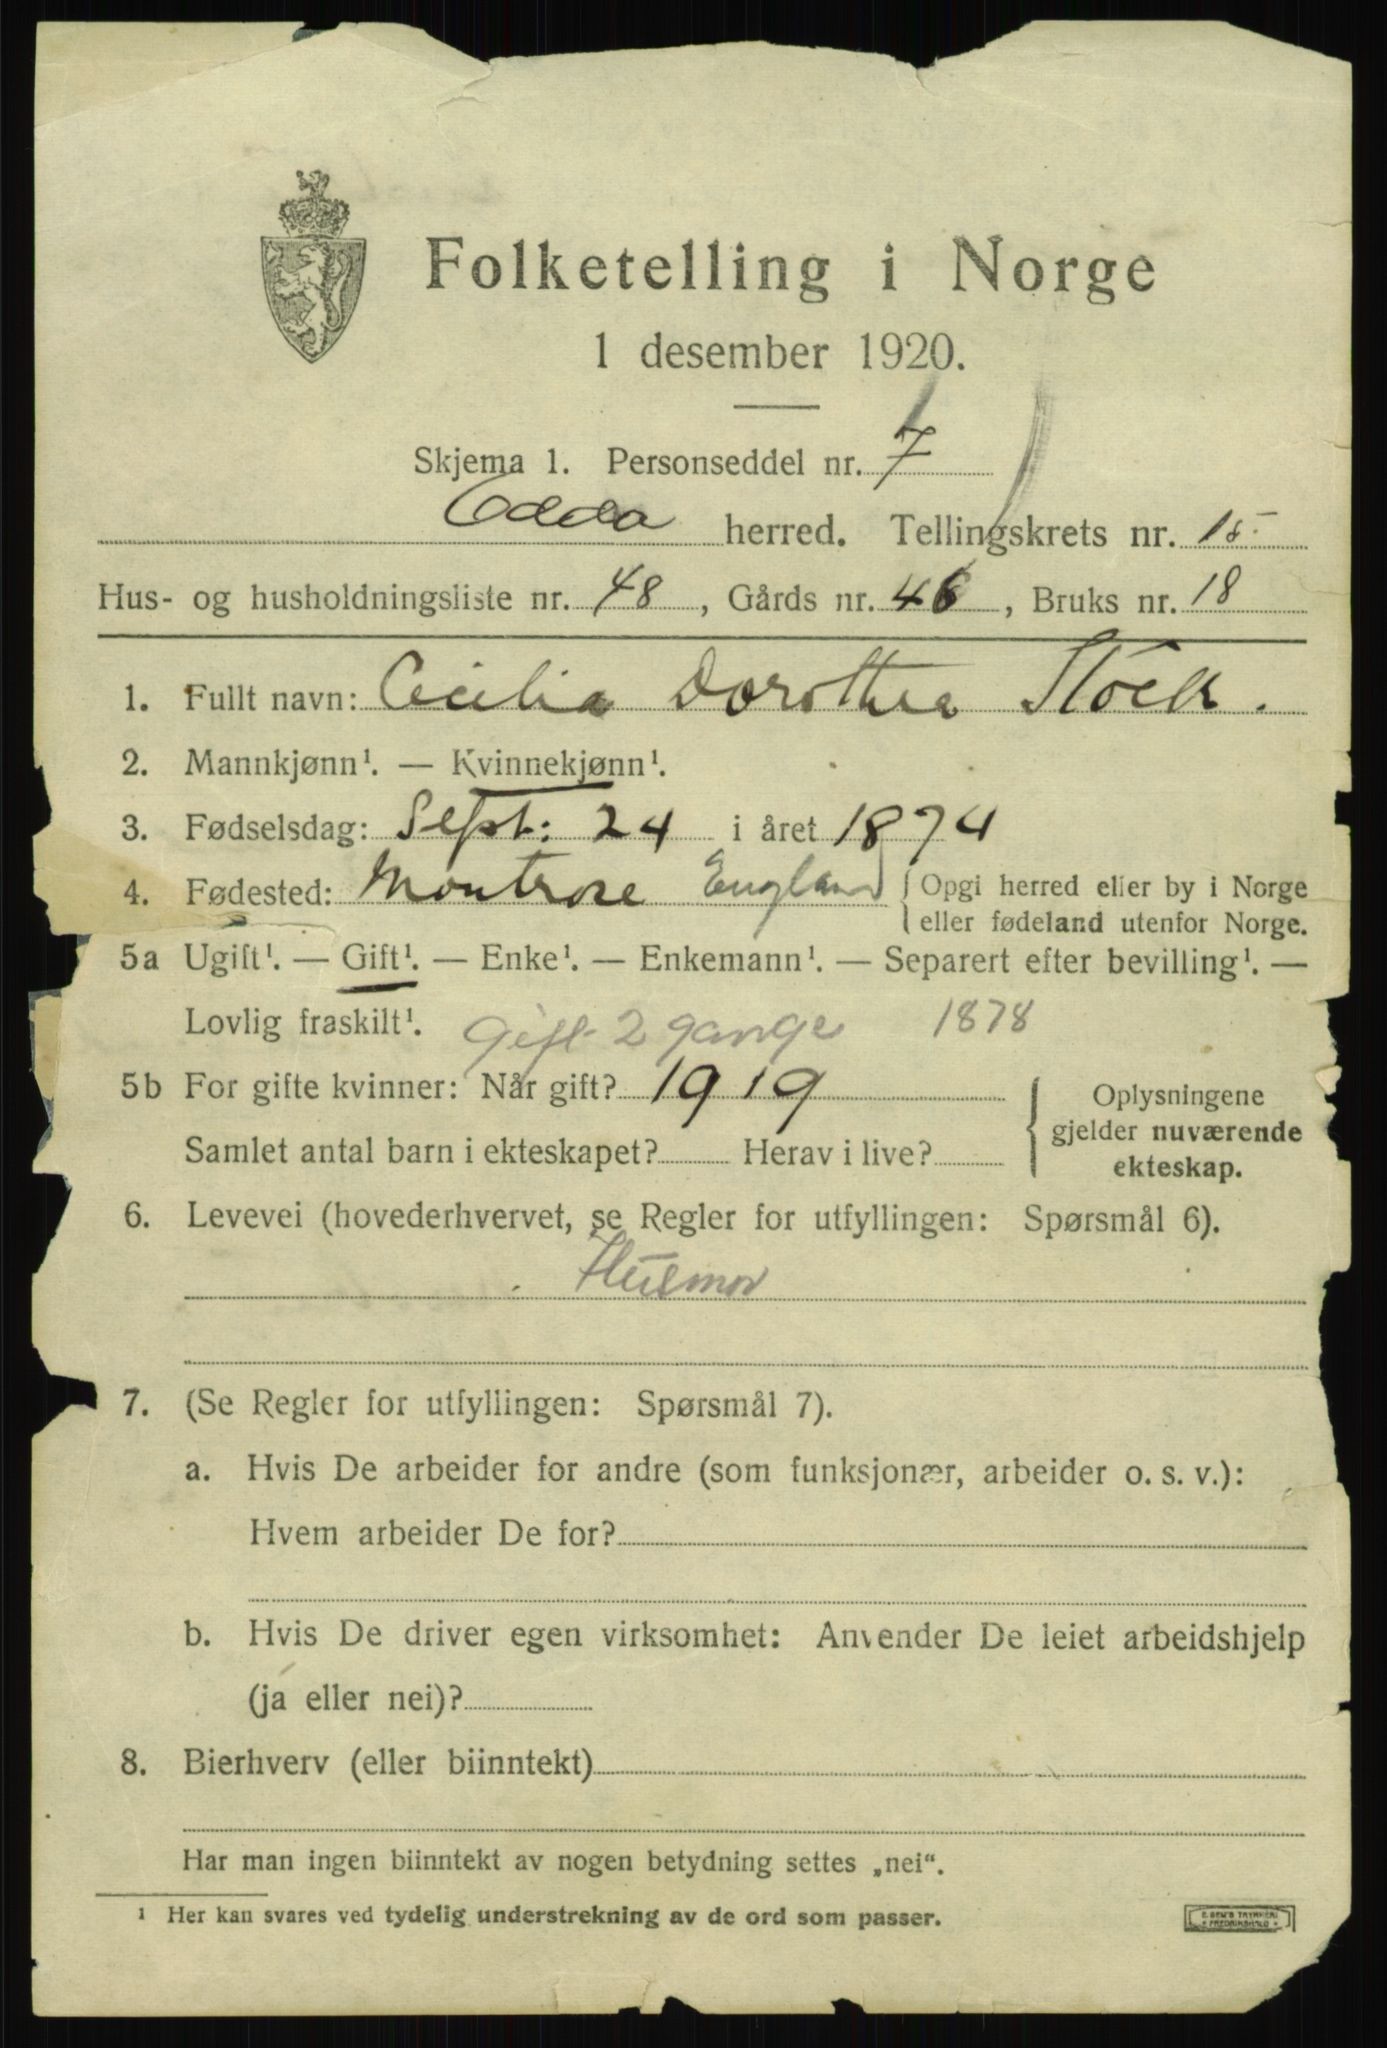 Folketelling i Norge
1 desember 1920.
Skjema 1. Personseddel nr. 7
Odda herred. Tellingskrets nr. 15
Hus- og husholdningsliste nr. 48, Gårds nr. 46, Bruks nr. 18
1. Fullt navn: Cecilia Dorothea Stöck.
2. Mannkjønn¹. — Kvinnekjønn¹.
3. Fødselsdag: Sept: 24 i året 1874
4. Fødested: Montrose England { Opgi herred eller by i Norge
eller fødeland utenfor Norge.
5a Ugift¹. — Gift¹. — Enke¹. — Enkemann¹. — Separert efter bevilling¹. —
Lovlig fraskilt¹. Gift 2 gange 1878
5b For gifte kvinner: Når gift? 1919
Samlet antal barn i ekteskapet? Herav i live?
{ Oplysningene
gjelder nuværende
ekteskap.
6. Levevei (hovederhvervet, se Regler for utfyllingen: Spørsmål 6).
Husmor
7. (Se Regler for utfyllingen: Spørsmål 7).
a. Hvis De arbeider for andre (som funksjonær, arbeider o. s. v.):
Hvem arbeider De for?
b. Hvis De driver egen virksomhet: Anvender De leiet arbeidshjelp
(ja eller nei)?
8. Bierhverv (eller biinntekt)
Har man ingen biinntekt av nogen betydning settes „nei“.
¹ Her kan svares ved tydelig understrekning av de ord som passer.